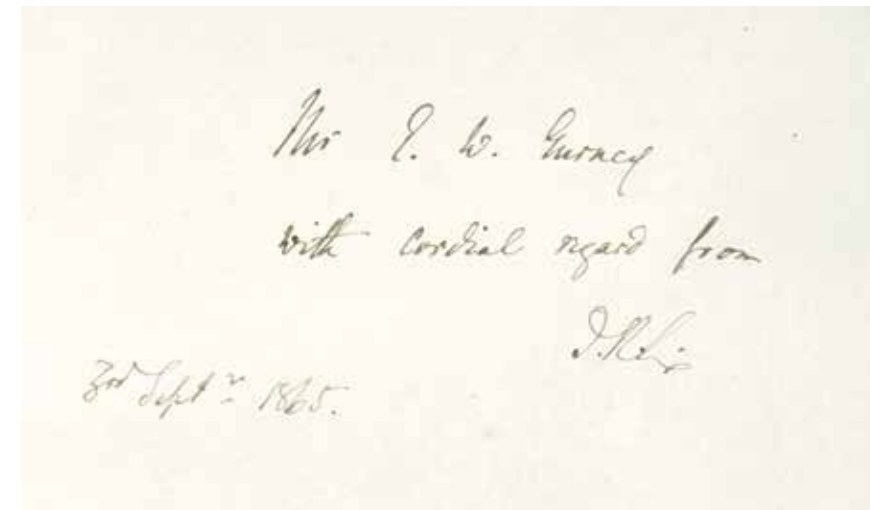 Mr E. W. Gurney
with cordial regard from
3rd Septr 1865.